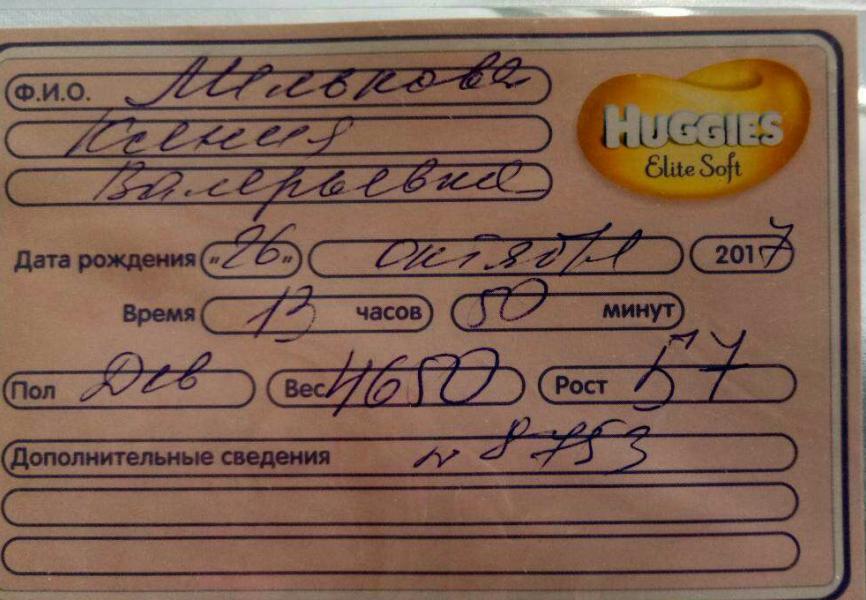 Ф.И.О. Мелькова
HUGGIES
Ксения
Elite Soft
Валерьевна
Дата рождения «26» октября 2017
Время 13 часов 50 минут
Пол Дев Вес 4650 Рост 57
Дополнительные сведения № 8753